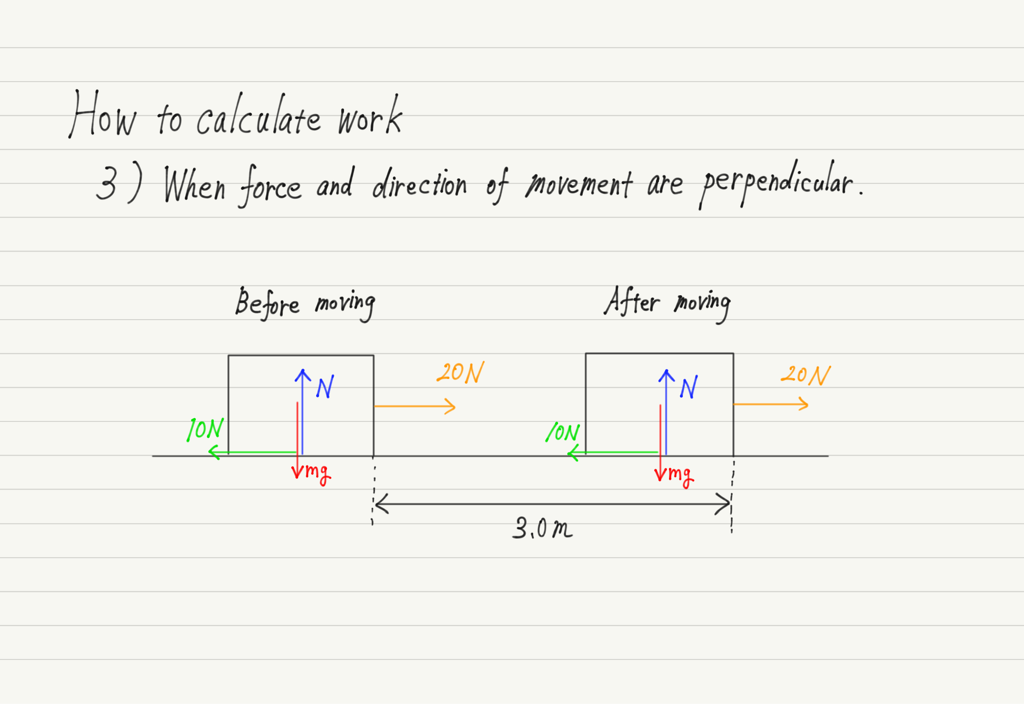 How to calculate work
3) When force and direction of movement are perpendicular.
Before moving
After moving
N
20N
N
20N
10N
10N
mg
mg
3.0m